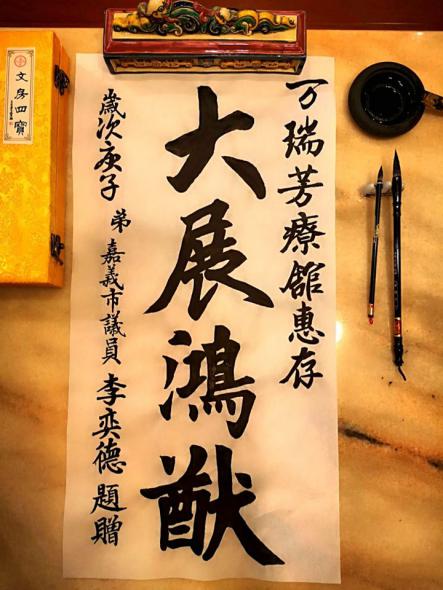 万瑞芳療館惠存
大展鴻猷
歲次庚子
弟 嘉義市議員 李奕德 題贈
文房四寶